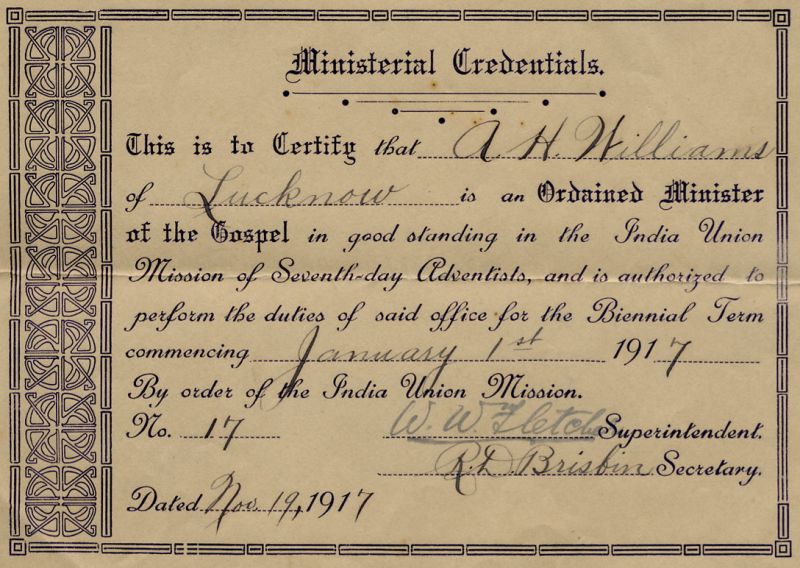 Ministerial Credentials.
This is to Certify that A. H. Williams
of Lucknow is an Ordained Minister
of the Gospel in good standing in the India Union
Mission of Seventh-day Adventists, and is authorized to
perform the duties of said office for the Biennial Term
commencing January 1st 1917
By order of the India Union Mission.
No. 17 W. W. Fletcher Superintendent.
R. D. Brisbin Secretary.
Dated Nov. 19, 1917